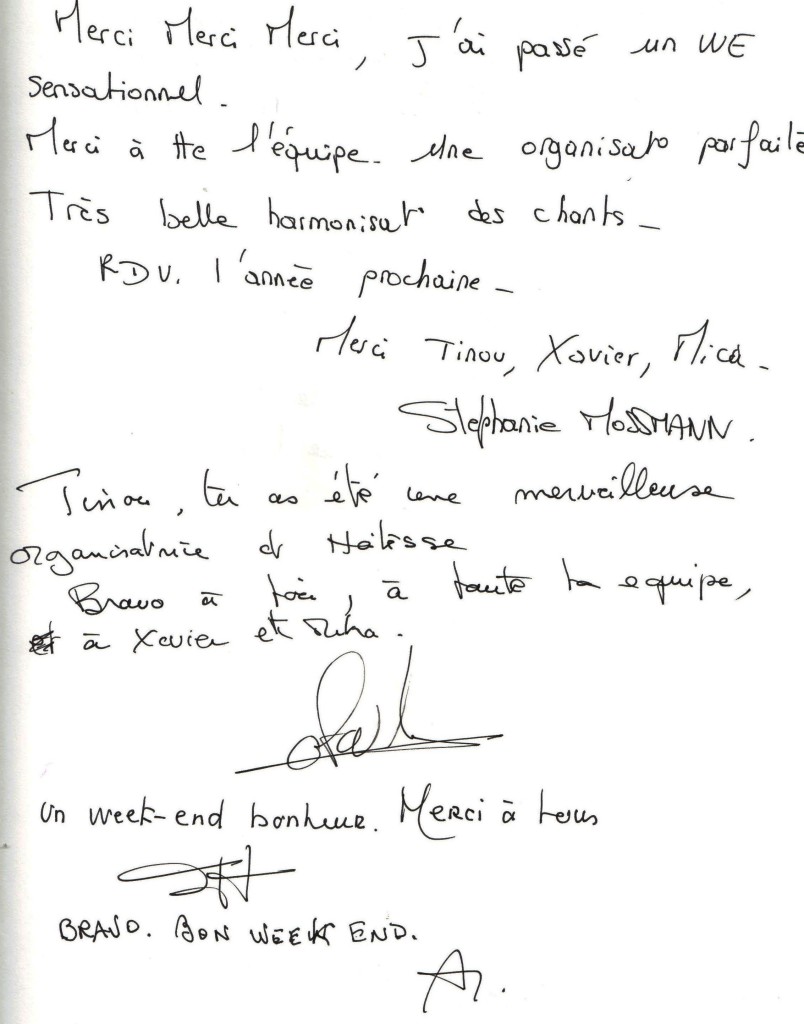 Merci Merci Merci, J'ai passé un WE
sensationnel.
Merci à tte l'équipe. Une organisat° parfaite
Très belle harmonisat° des chants -
RDV. l'année prochaine -
Merci Tinou, Xavier, Mica -
Stephanie MOSSMANN.
Tinou, tu as été une merveilleuse
organisatrice et Hôtesse
Bravo à toi, à toute ta equipe,
à Xavier et
Un week-end bonheur. Merci à tous
BRAVO. BON WEEK END.